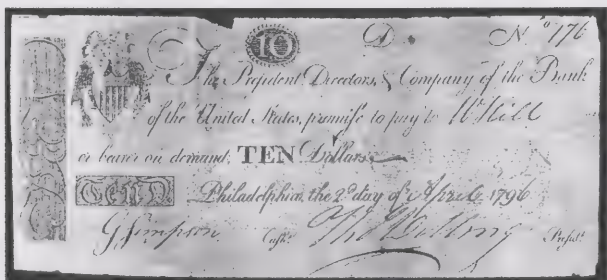 10 D. No 176
The President Directors, & Company of the Bank
of the United States, promise to pay to Wm Hill
or bearer on demand, TEN Dollars
TEN Philadelphia, the 2d day of April 1796
G Simpson. Cashr. Tho Willing Presidt.